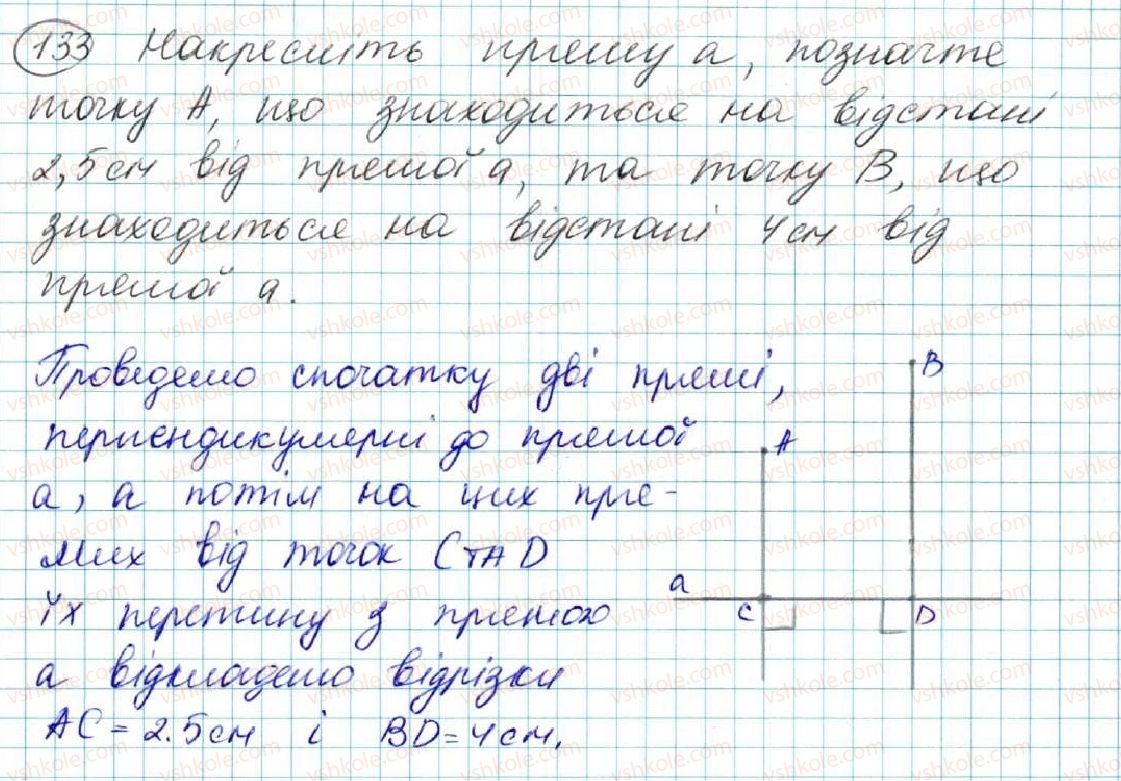 133 Накресліть пряму а, позначте
точку А, що знаходиться на відстані
2,5 см від прямої а, та точку В, що
знаходиться на відстані 4 см від
прямої а.
Проведемо спочатку дві прямі,
перпендикулярні до прямої
а, а потім на цих пря-
мих від точок С та D
їх перетину з прямою
а відкладемо відрізки
АС = 2.5 см і BD = 4 см.
B
A
a
C
D
vshkole.com